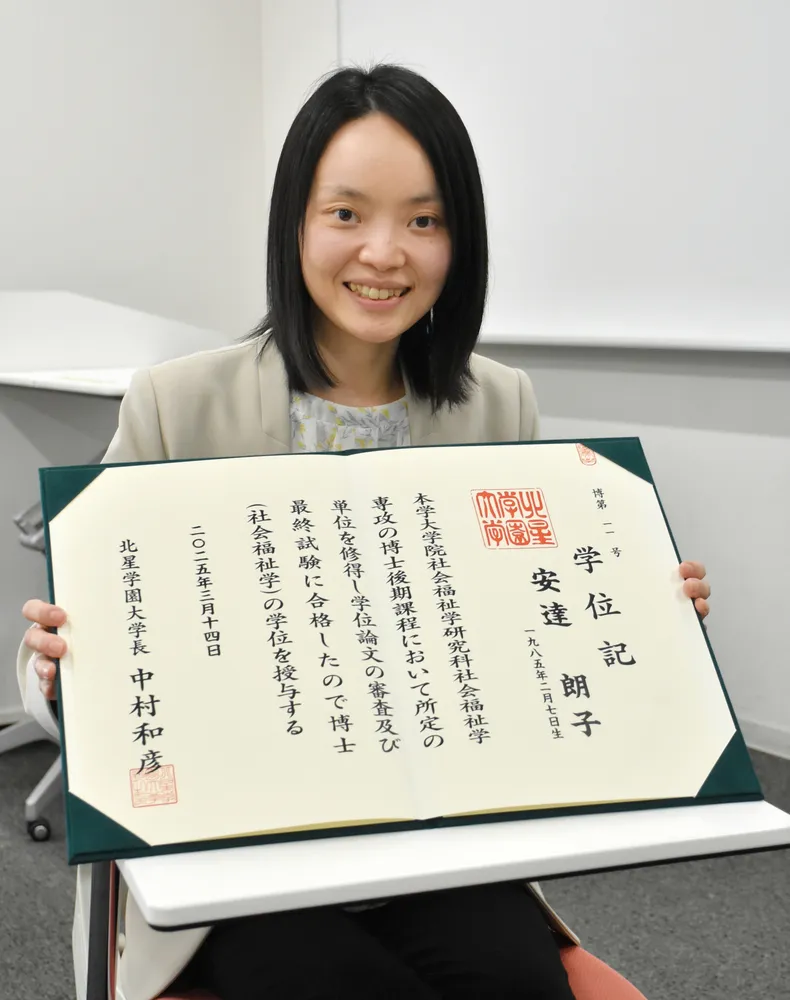 博第一一号
学位記
安達朗子
一九八五年二月七日生
北星学園大学
本学大学院社会福祉学研究科社会福祉学
専攻の博士後期課程において所定の
単位を修得し学位論文の審査及び
最終試験に合格したので博士
(社会福祉学)の学位を授与する
二〇二五年三月十四日
北星学園大学長 中村和彦